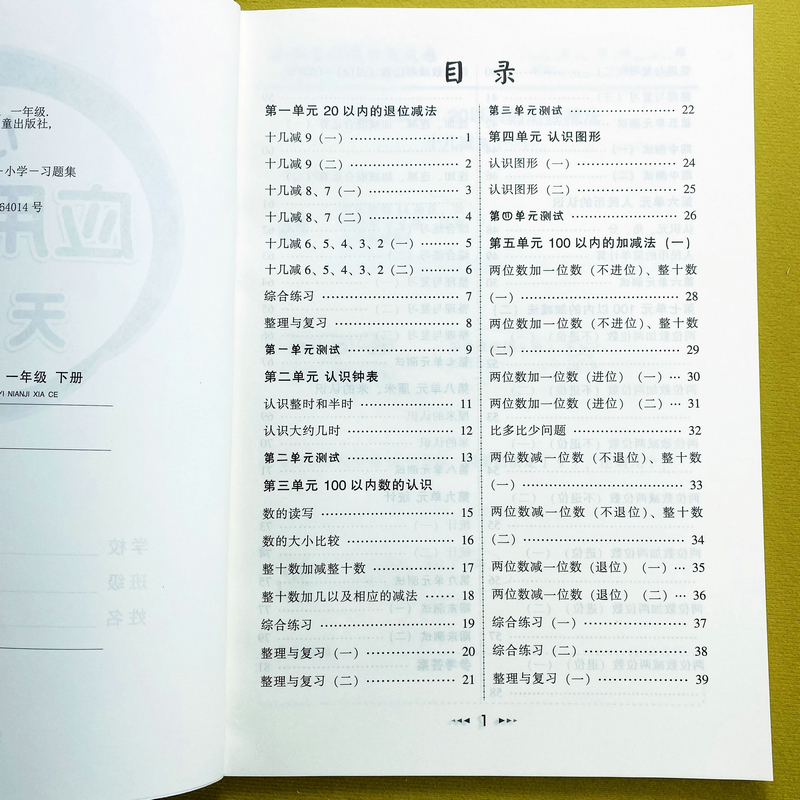 一年级.
童出版社,
-小学-习题集
64014 号
一年级 下册
YI NIANJI XIA CE
目 录
第一单元 20 以内的退位减法
十几减 9（一） 1
十几减 9（二） 2
十几减 8、7（一） 3
十几减 8、7（二） 4
十几减 6、5、4、3、2（一） 5
十几减 6、5、4、3、2（二） 6
综合练习 7
整理与复习 8
第一单元测试 9
第二单元 认识钟表
认识整时和半时 11
认识大约几时 12
第二单元测试 13
第三单元 100 以内数的认识
数的读写 15
数的大小比较 16
整十数加减整十数 17
整十数加几以及相应的减法 18
综合练习 19
整理与复习（一） 20
整理与复习（二） 21
第三单元测试 22
第四单元 认识图形
认识图形（一） 24
认识图形（二） 25
第四单元测试 26
第五单元 100 以内的加减法（一）
两位数加一位数（不进位）、整十数
（一） 28
两位数加一位数（不进位）、整十数
（二） 29
两位数加一位数（进位）（一） 30
两位数加一位数（进位）（二） 31
比多比少问题 32
两位数减一位数（不退位）、整十数
（一） 33
两位数减一位数（不退位）、整十数
（二） 34
两位数减一位数（退位）（一） 35
两位数减一位数（退位）（二） 36
综合练习（一） 37
综合练习（二） 38
整理与复习（一） 39
1